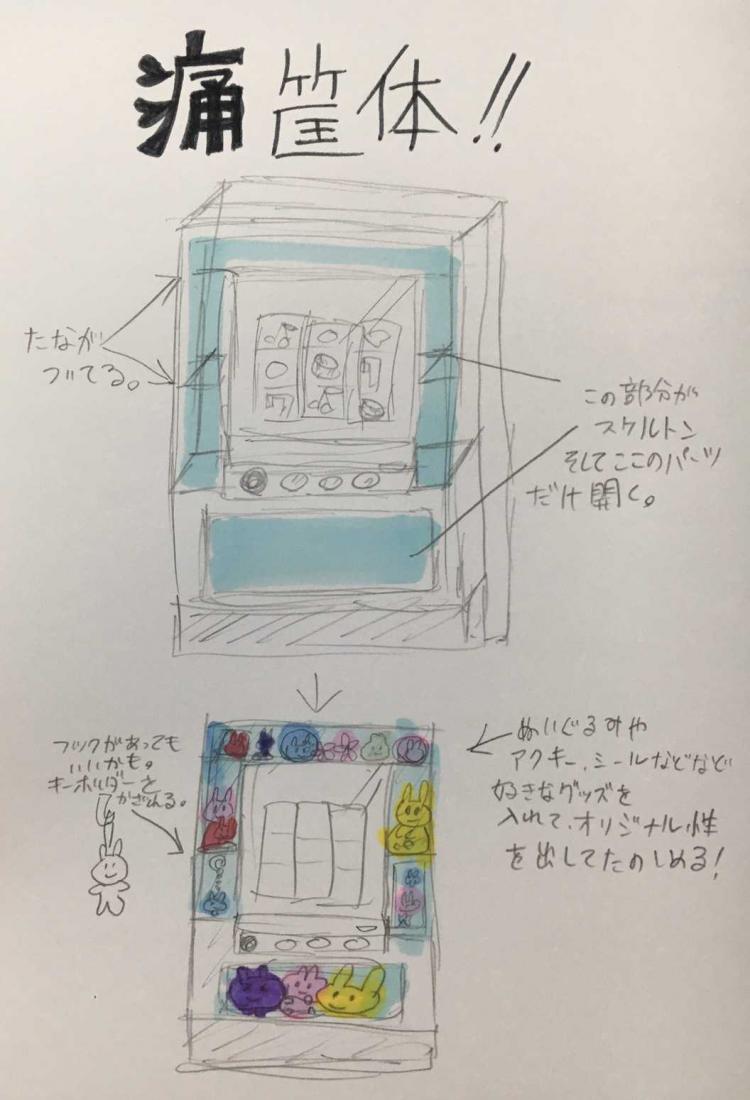 痛筐体!!
たなが
ついてる。
この部分が
スケルトン
そしてここのパーツ
だけ開く。
フックがあっても
いいかも。
キーホルダーを
かざれる。
ぬいぐるみや
アクキー、シールなどなど
好きなグッズを
入れて、オリジナル性
を出してたのしめる!